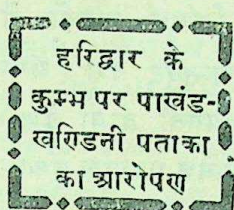 हरिद्वार के
कुम्भ पर पाखंड-
खण्डिनी पताका
का आरोपण